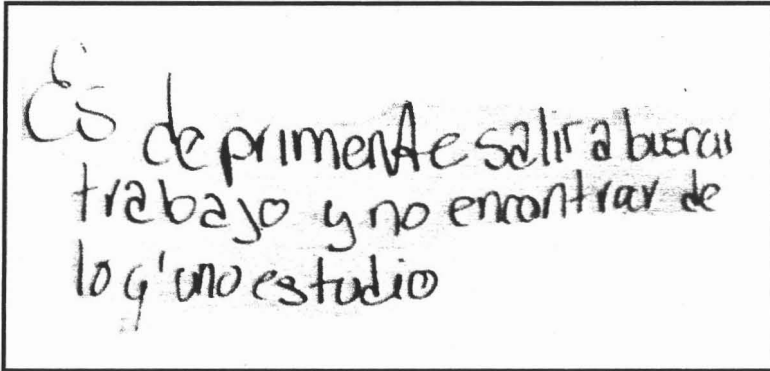 Es deprimente salir a buscar
trabajo y no encontrar de
lo q' uno estudio